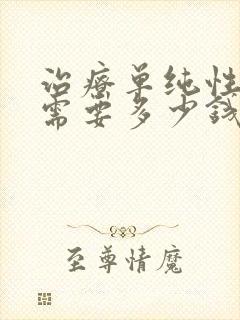 治療单纯性
需要多少钱
至尊情魔